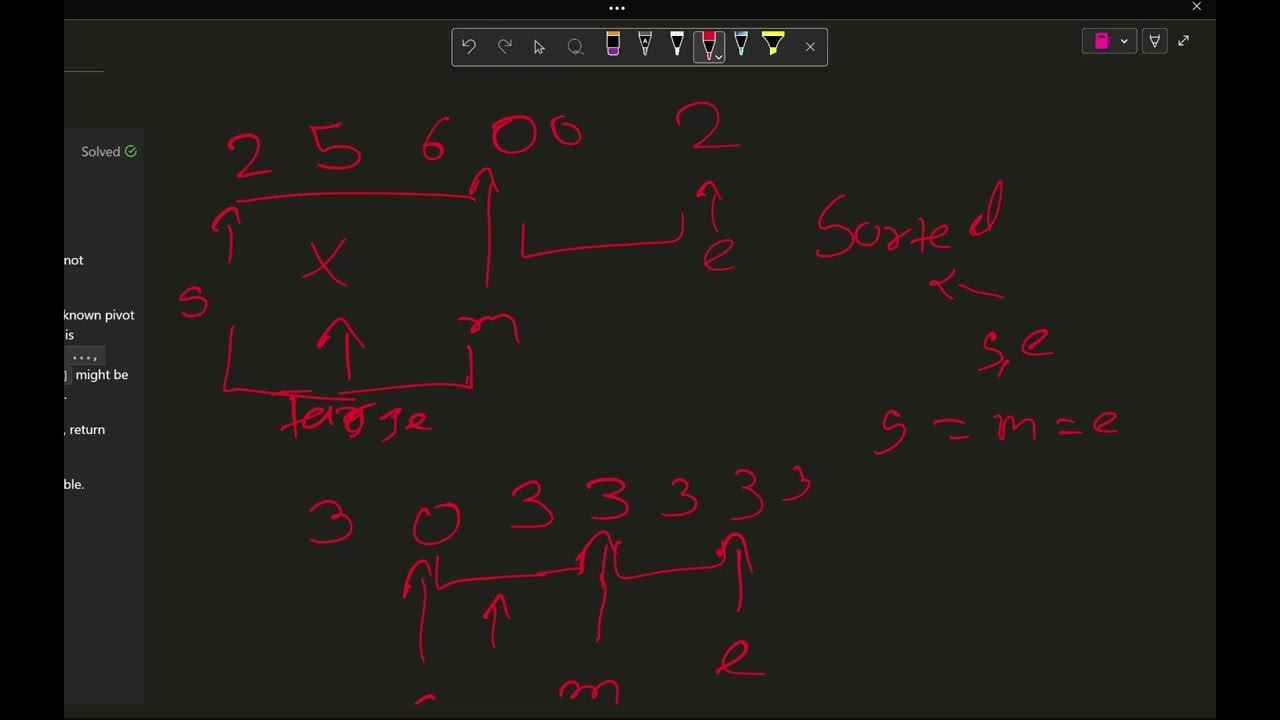 Solved
2 5 6 0 0 2
not
Sorted
e
s
known pivot
m
is
s, e
...,
] might be
, return
s = m = e
ble.
3 0 3 3 3 3 3
e
m